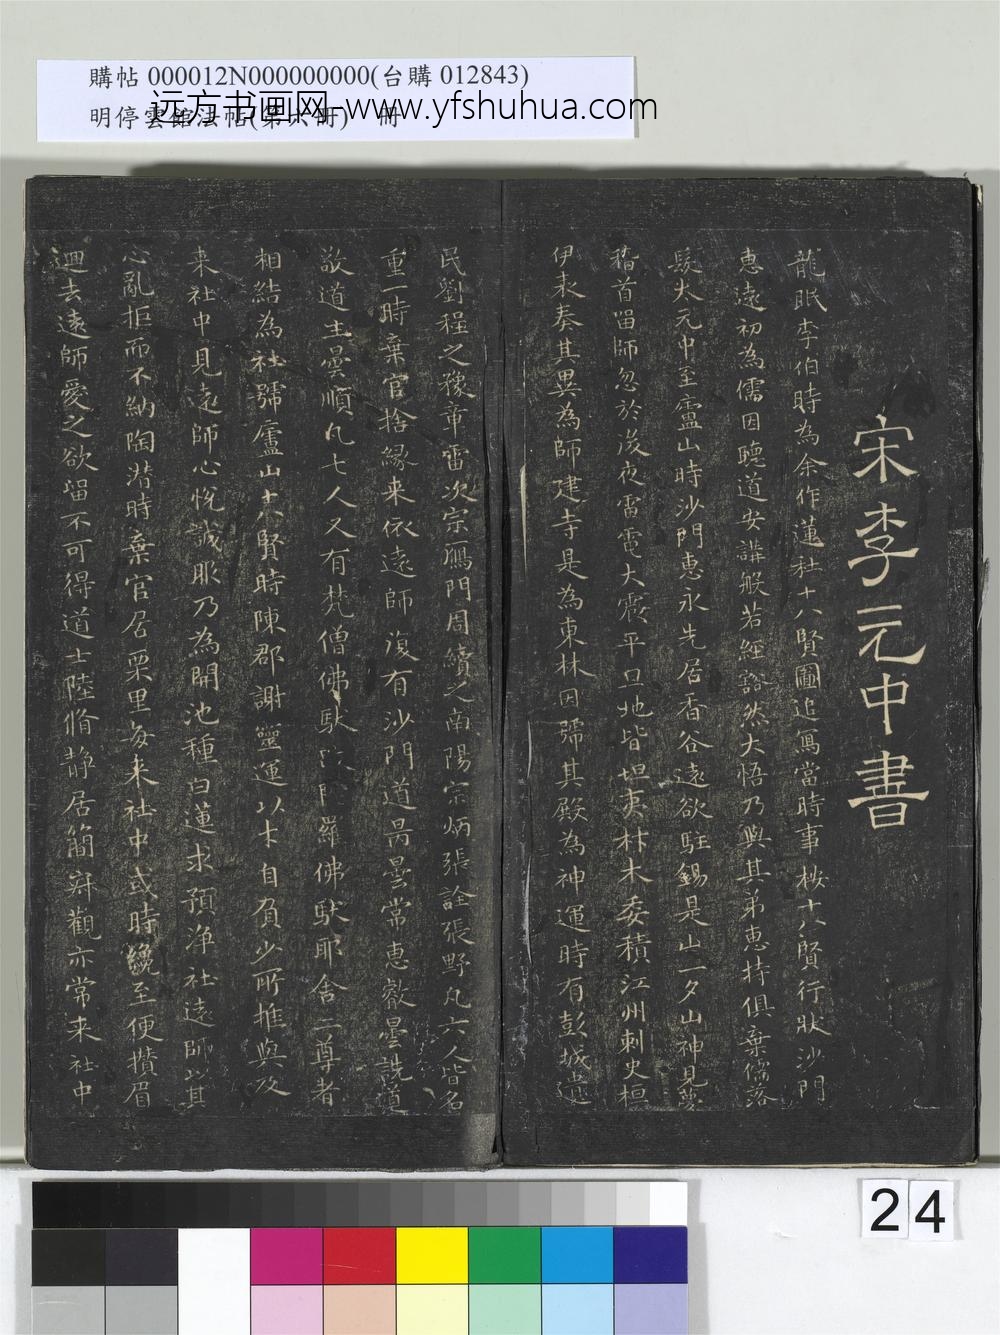 購帖 000012N000000000(台購 012843)
明停雲館法帖(第六冊) 冊
远方书画网-www.yfshuhua.com
宋李元中書
龍眠李伯時為余作蓮社十八賢圖追寫當時事桉十八賢行狀沙門
惠遠初為儒因聽道安講般若經豁然大悟乃與其弟惠持俱棄儒落
髮太元中至廬山時沙門惠永先居香谷遠欲駐錫是山一夕山神見夢
稽首留師忽於後夜雷電大震平旦地皆坦夷材木委積江州刺史桓
伊表奏其異為師建寺是為東林因號其殿為神運時有彭城遺
民劉程之豫章雷次宗鴈門周續之南陽宗炳張詮張野凡六人皆名
重一時棄官捨緣来依遠師復有沙門道昺曇常惠叡曇詵道
敬道生曇順凡七人又有梵僧佛馱 羅佛馱耶舍二尊者
相結為社號廬山十八賢時陳郡謝靈運以才自負少所推與及
来社中見遠師心悅誠服乃為開池種白蓮求預淨社遠師以其
心亂拒而不納陶潜時棄官居栗里每来社中或時纔至便攢眉
迴去遠師愛之欲留不可得道士陸脩静居簡寂觀亦常来社中
24